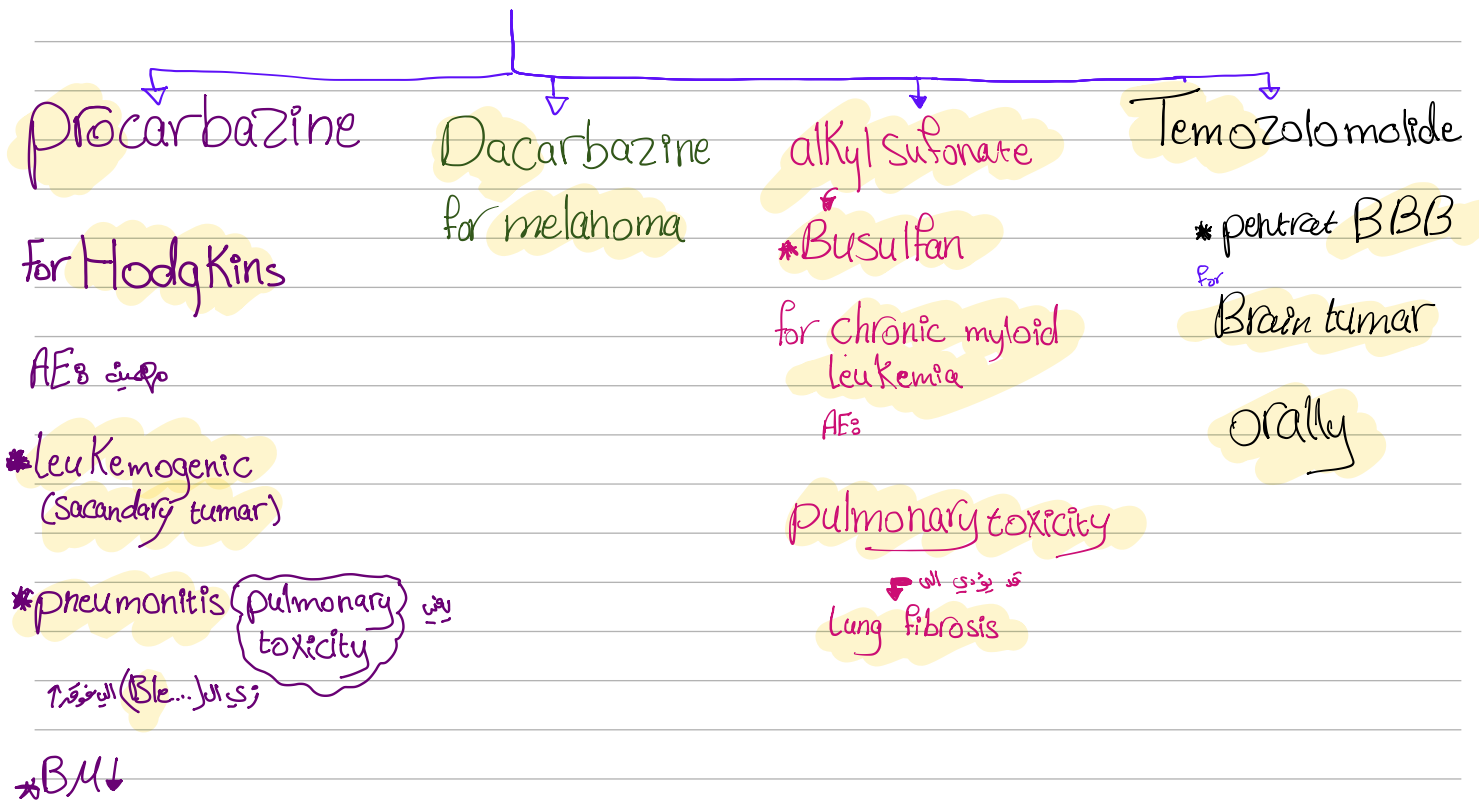 procarbazine
for Hodgkins
AE: مهمين
* leukemogenic
(sacandary tumar)
* pneumonitis (pulmonary toxicity) يعني
زي ال(Ble...) الي فوق ↑
* BM↓
Dacarbazine
for melanoma
alkyl sufonate
* Busulfan
for chronic myloid
leukemia
AE:
pulmonary toxicity
قد يؤدي الى
Lung fibrosis
Temozolomolide
* pentrat BBB
for
Brain tumar
orally